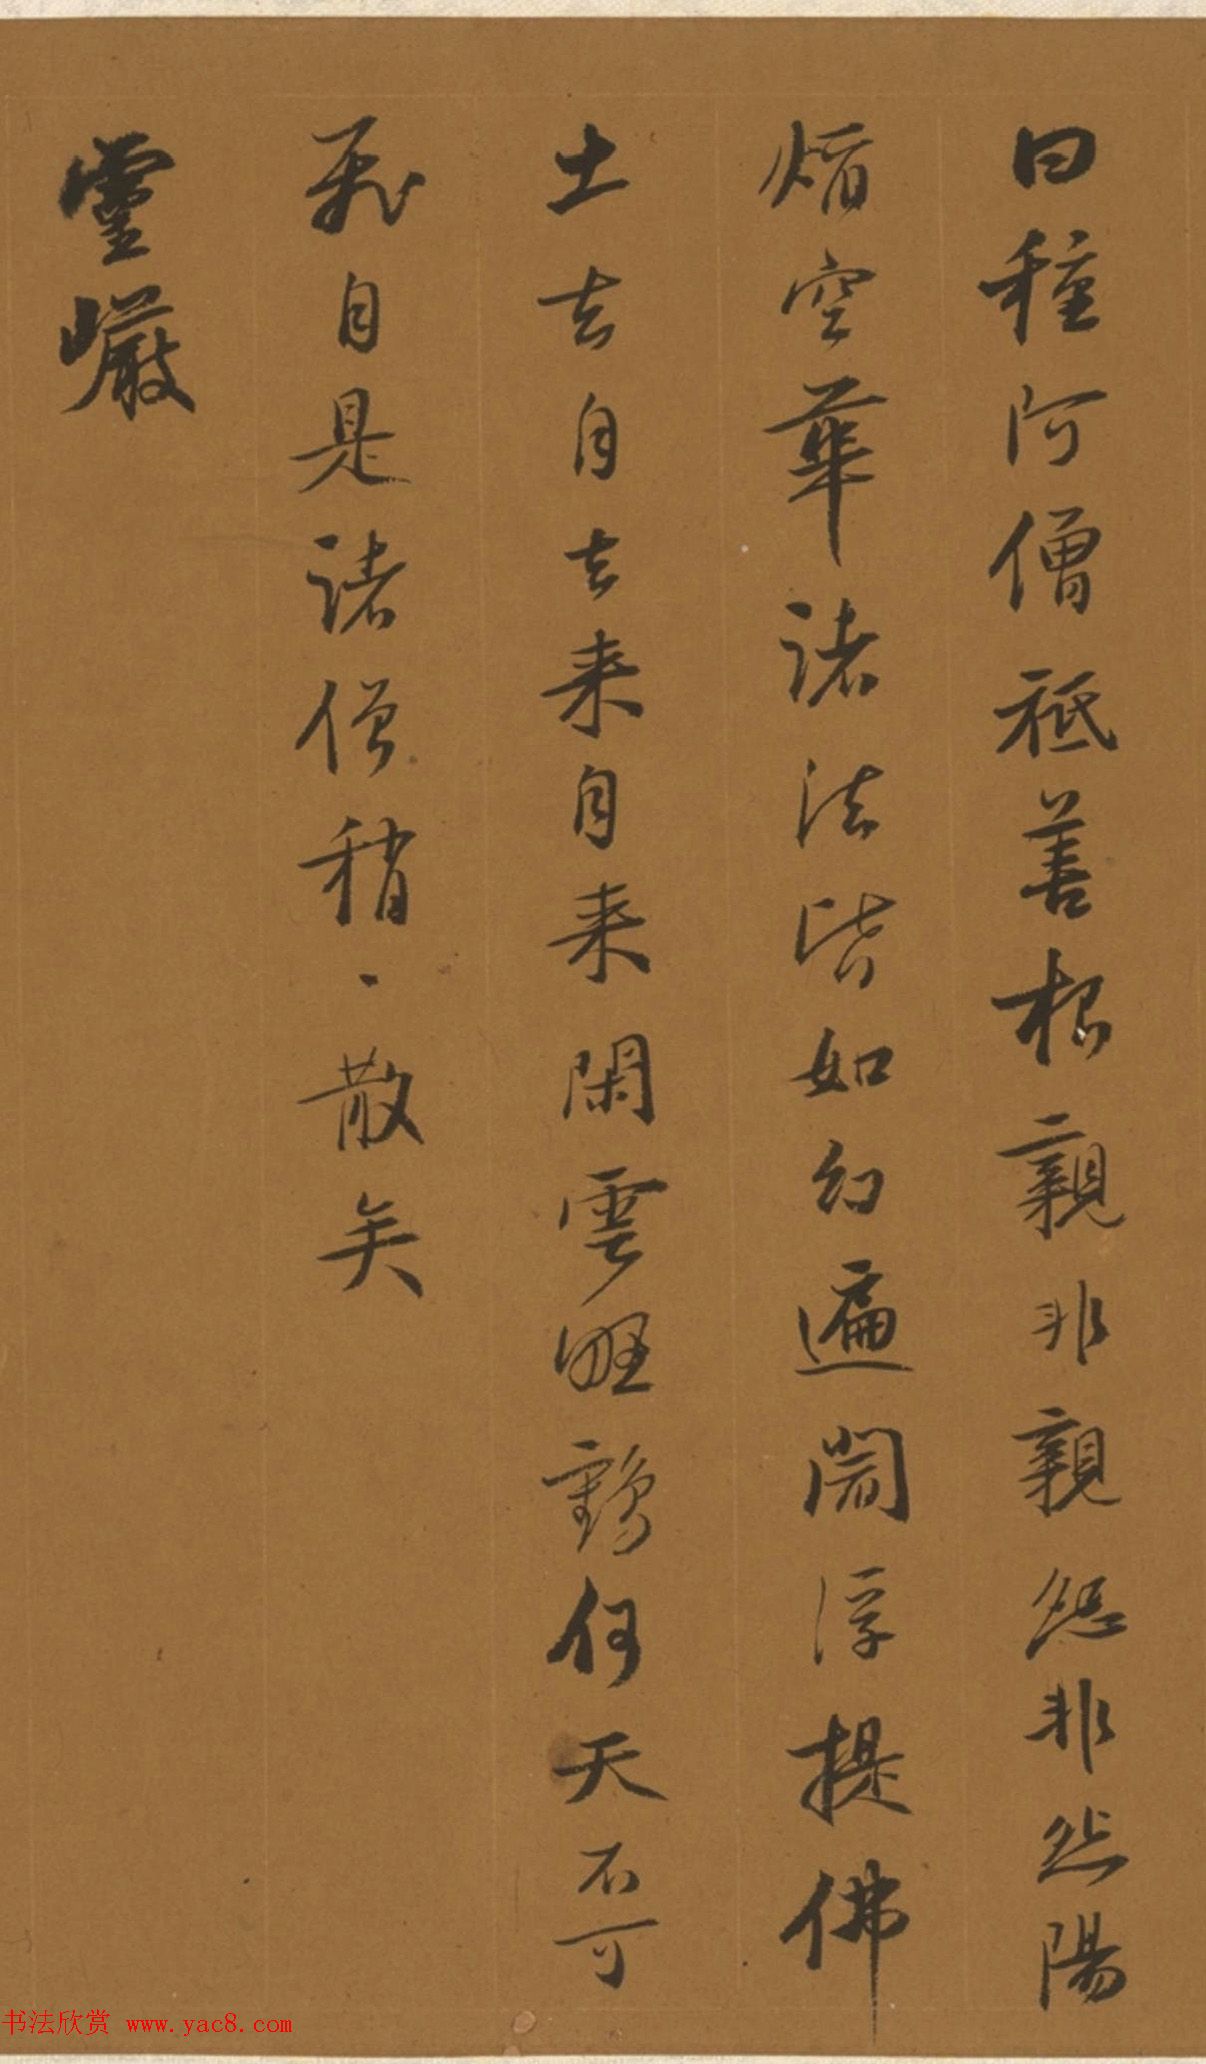 曰種阿僧祇善根親非親怨非怨陽
焰空華諸法皆如幻遍閻浮提佛
土去自去来自来閑雲野鶴何天不可
飛自是諸僧稍・散矣
靈巖
书法欣赏 www.yac8.com